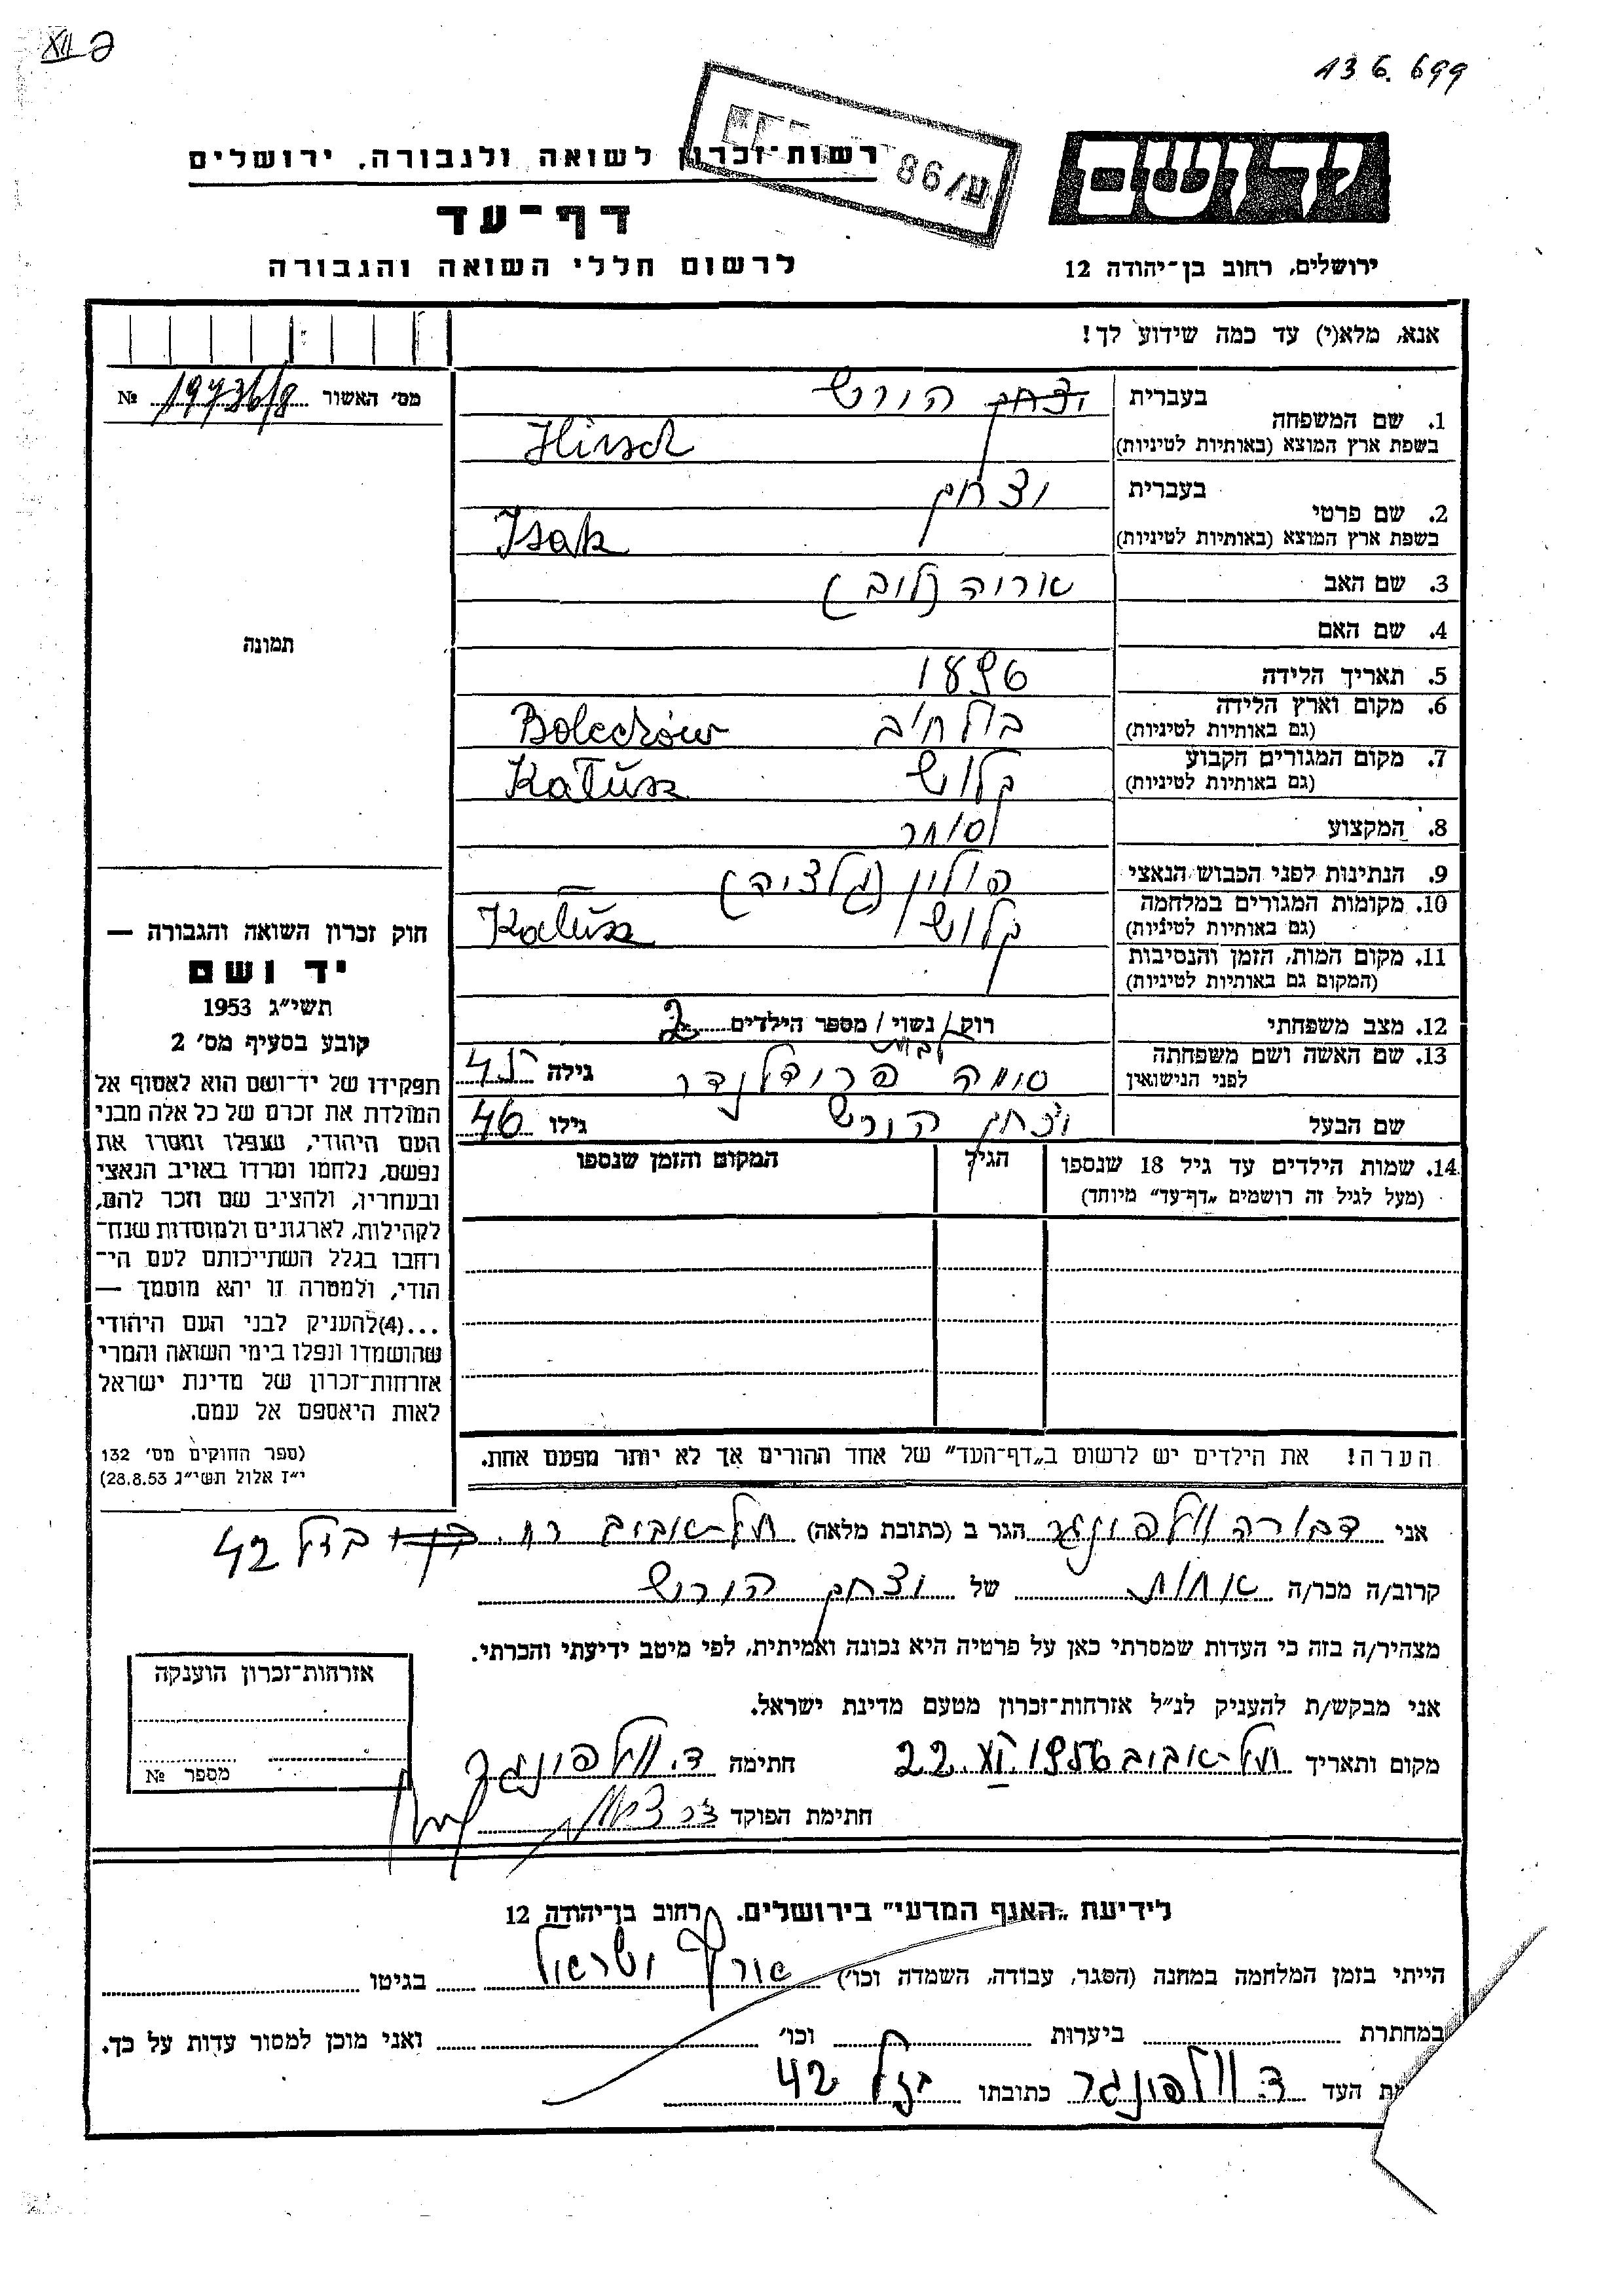 XII ב
136.699
רשות־זכרון לשואה ולגבורה, ירושלים
ע/86
יד ושם
דף־עד
לרשום חללי השואה והגבורה
ירושלים, רחוב בן־יהודה 12
אנא, מלא(י) עד כמה שידוע לך!
מס׳ האשור 19736/8 №
1. שם המשפחה
בעברית יצחק הירש
בשפת ארץ המוצא (באותיות לטיניות) Hirsch
2. שם פרטי
בעברית יצחק
בשפת ארץ המוצא (באותיות לטיניות) Isak
3. שם האב אריה (ליב)
4. שם האם
תמונה
5. תאריך הלידה 1896
6. מקום וארץ הלידה
(גם באותיות לטיניות) בולחיב Bolechów
7. מקום המגורים הקבוע
(גם באותיות לטיניות) קלוש Kałusz
8. המקצוע סוחר
9. הנתינות לפני הכבוש הנאצי פולין (גליציה)
10. מקומות המגורים במלחמה
(גם באותיות לטיניות) קלוש Kałusz
11. מקום המות, הזמן והנסיבות
(המקום גם באותיות לטיניות)
12. מצב משפחתי רוק / נשוי / מספר הילדים 2
13. שם האשה ושם משפחתה
לפני הנישואין פרידלנדר גילה 45
שם הבעל יצחק הירש גילו 46
14. שמות הילדים עד גיל 18 שנספו
(מעל לגיל זה רושמים „דף־עד” מיוחד)
הגיל
המקום והזמן שנספו
חוק זכרון השואה והגבורה —
יד ושם
תשי״ג 1953
קובע בסעיף מס׳ 2
תפקידו של יד־ושם הוא לאסוף אל
המולדת את זכרם של כל אלה מבני
העם היהודי, שנפלו ומסרו את
נפשם, נלחמו ומרדו באויב הנאצי
ובעוזריו, ולהציב שם וזכר להם,
לקהילות, לארגונים ולמוסדות שנח־
רבו בגלל השתייכותם לעם הי־
הודי, ולמטרה זו יהא מוסמך —
...(4)להעניק לבני העם היהודי
שהושמדו ונפלו בימי השואה והמרי
אזרחות־זכרון של מדינת ישראל
לאות היאספם אל עמם.
(ספר החוקים מס׳ 132
י״ז אלול תשי״ג 28.8.53)
הערה! את הילדים יש לרשום ב„דף־העד” של אחד ההורים אך לא יותר מפעם אחת.
אני דבורה וילפונגר הגר ב (כתובת מלאה) תל־אביב רח. בזל 42
קרוב/ה מכר/ה אחות של יצחק הירש
מצהיר/ה בזה כי העדות שמסרתי כאן על פרטיה היא נכונה ואמיתית, לפי מיטב ידיעתי והכרתי.
אני מבקש/ת להעניק לנ״ל אזרחות־זכרון מטעם מדינת ישראל.
אזרחות־זכרון הוענקה
מספר №
מקום ותאריך תל־אביב 22.XI.1956 חתימה ד. וילפונגר
חתימת הפוקד
לידיעת „האגף המדעי” בירושלים. רחוב בן־יהודה 12
הייתי בזמן המלחמה במחנה (הסגר, עבודה, השמדה וכו׳) ארץ ישראל בגיטו
במחתרת ביערות וכו׳ ואני מוכן למסור עדות על כך.
ת העד ד. וילפונגר כתובתו בזל 42